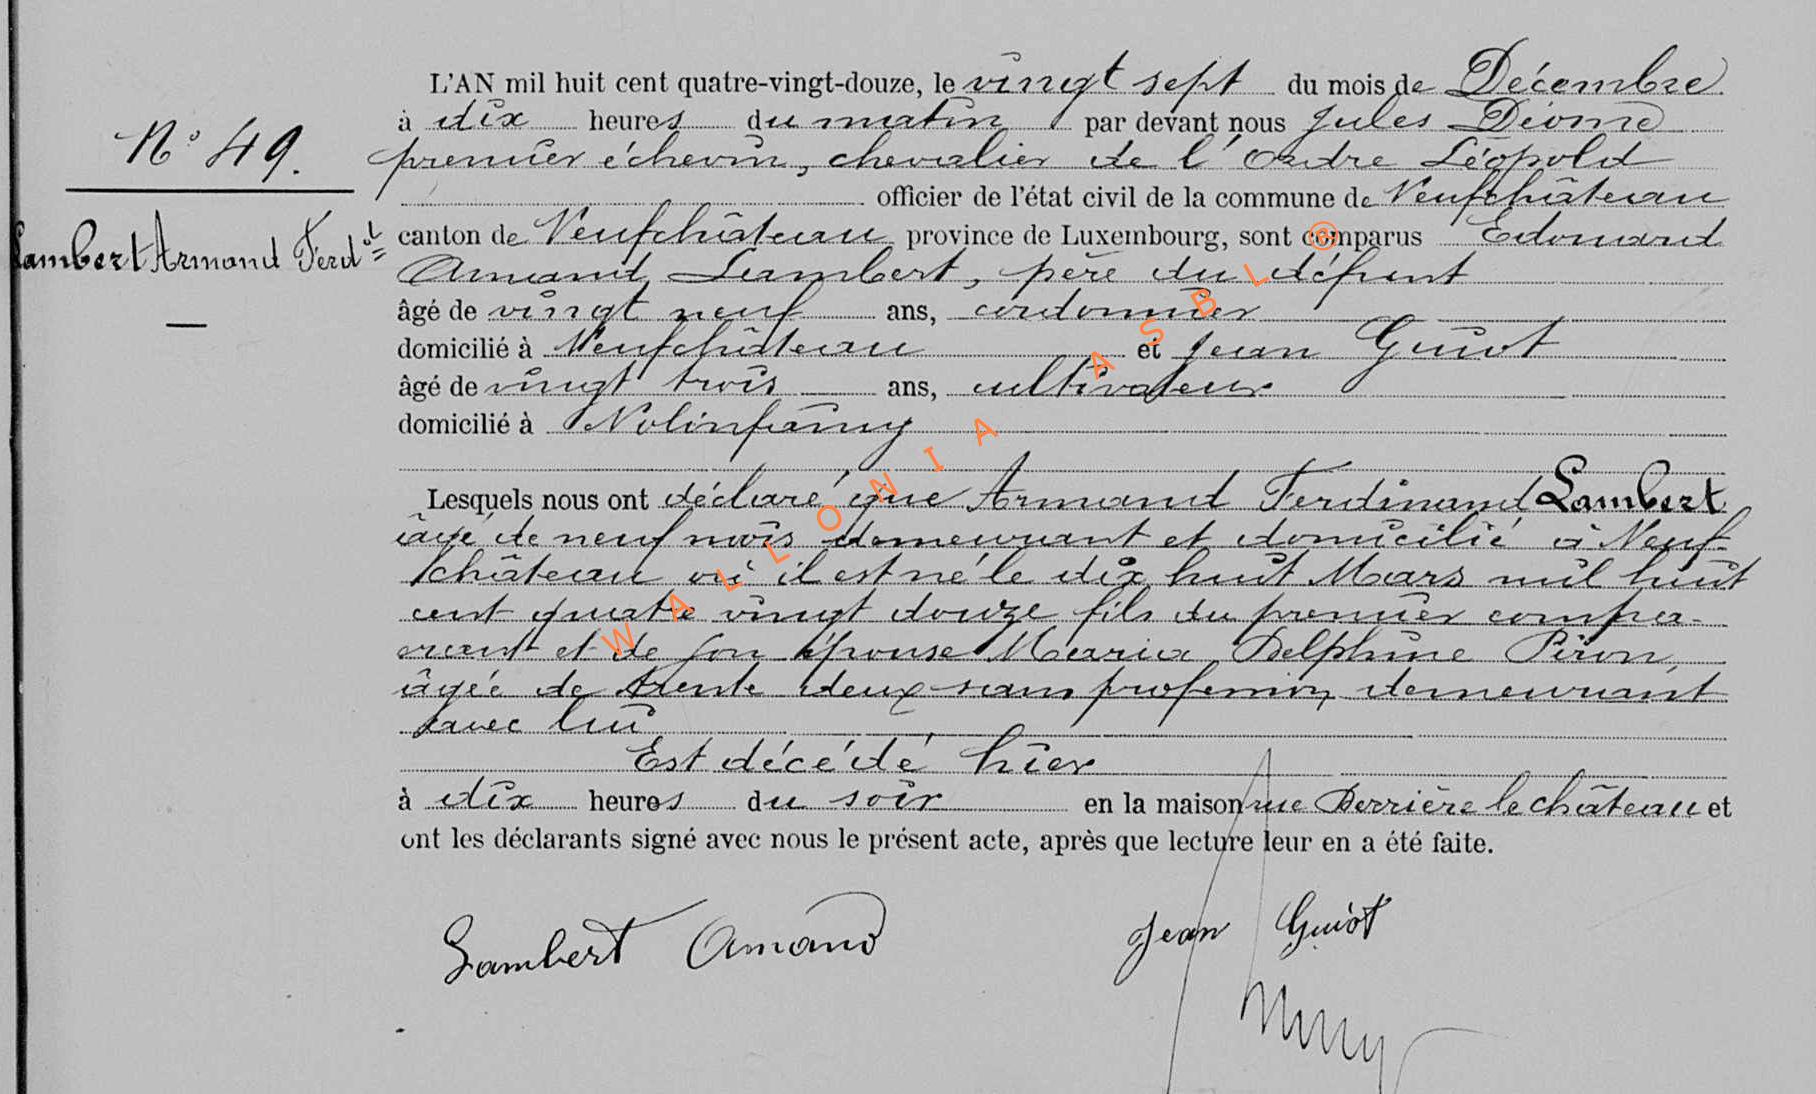 L'AN mil huit cent quatre-vingt-douze, le vingt sept du mois de Décembre
à dix heures du matin par devant nous Jules Déome
premier échevin, chevalier de l'Ordre Léopold
officier de l'état civil de la commune de Neufchâteau
canton de Neufchâteau province de Luxembourg, sont comparus Edouard
Amand Lambert, père du défunt
âgé de vingt neuf ans, cordonnier
domicilié à Neufchâteau et Jean Guiot
âgé de vingt trois ans, cultivateur
domicilié à Nolinfaing
Lesquels nous ont déclaré que Armand Ferdinand Lambert
âgé de neuf mois demeurant et domicilié à Neuf-
château où il est né le dix huit Mars mil huit
cent quatre vingt douze fils du premier compa-
rant et de son épouse Maria Delphine Piron,
âgée de trente deux sans profession demeurant
avec lui
Est décédé hier
à dix heures du soir en la maison rue Derrière le château et
ont les déclarants signé avec nous le présent acte, après que lecture leur en a été faite.
N° 49.
Lambert Armand Ferd^d
Lambert Amand
Jean Guiot
WALLONIA ASBL ®